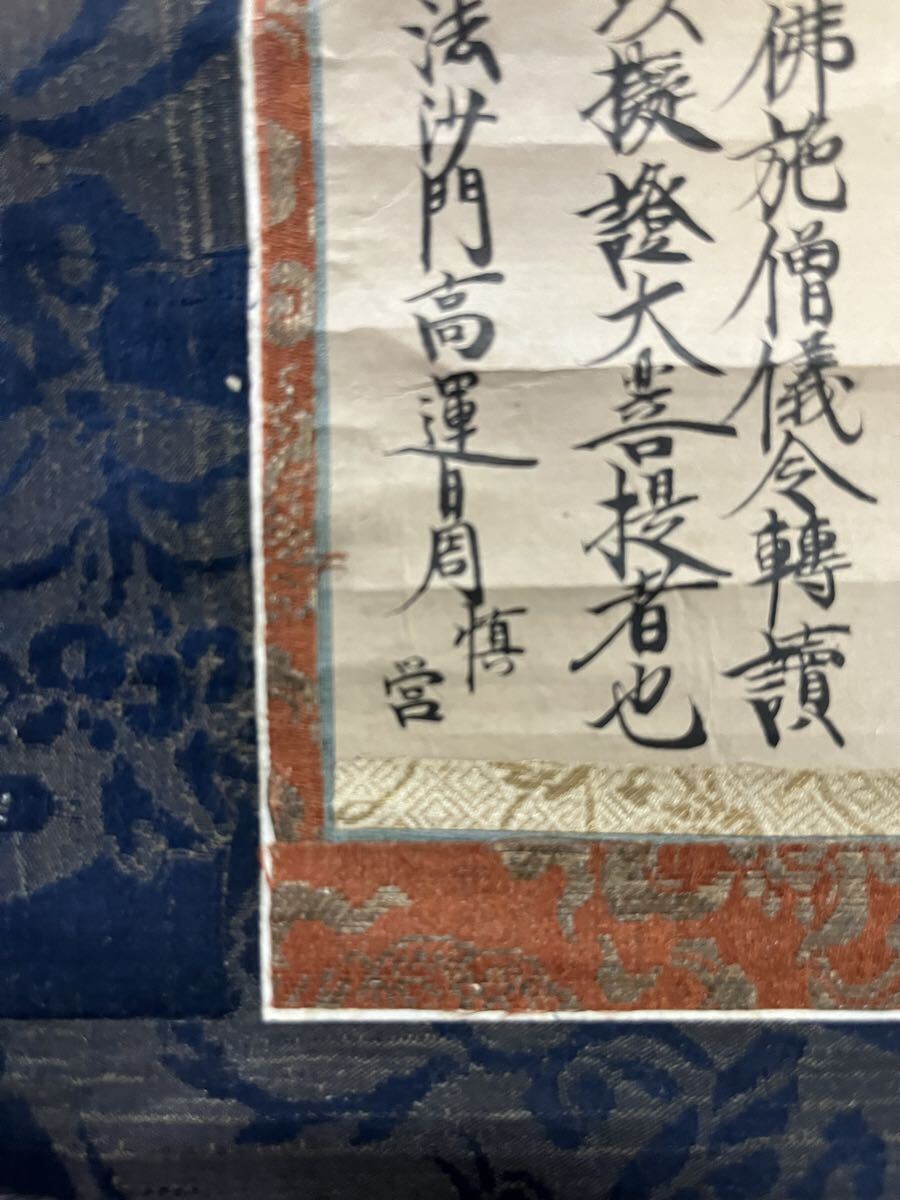 佛施僧儀令轉讀
擬證大菩提者也
法沙門高運日周慎
営